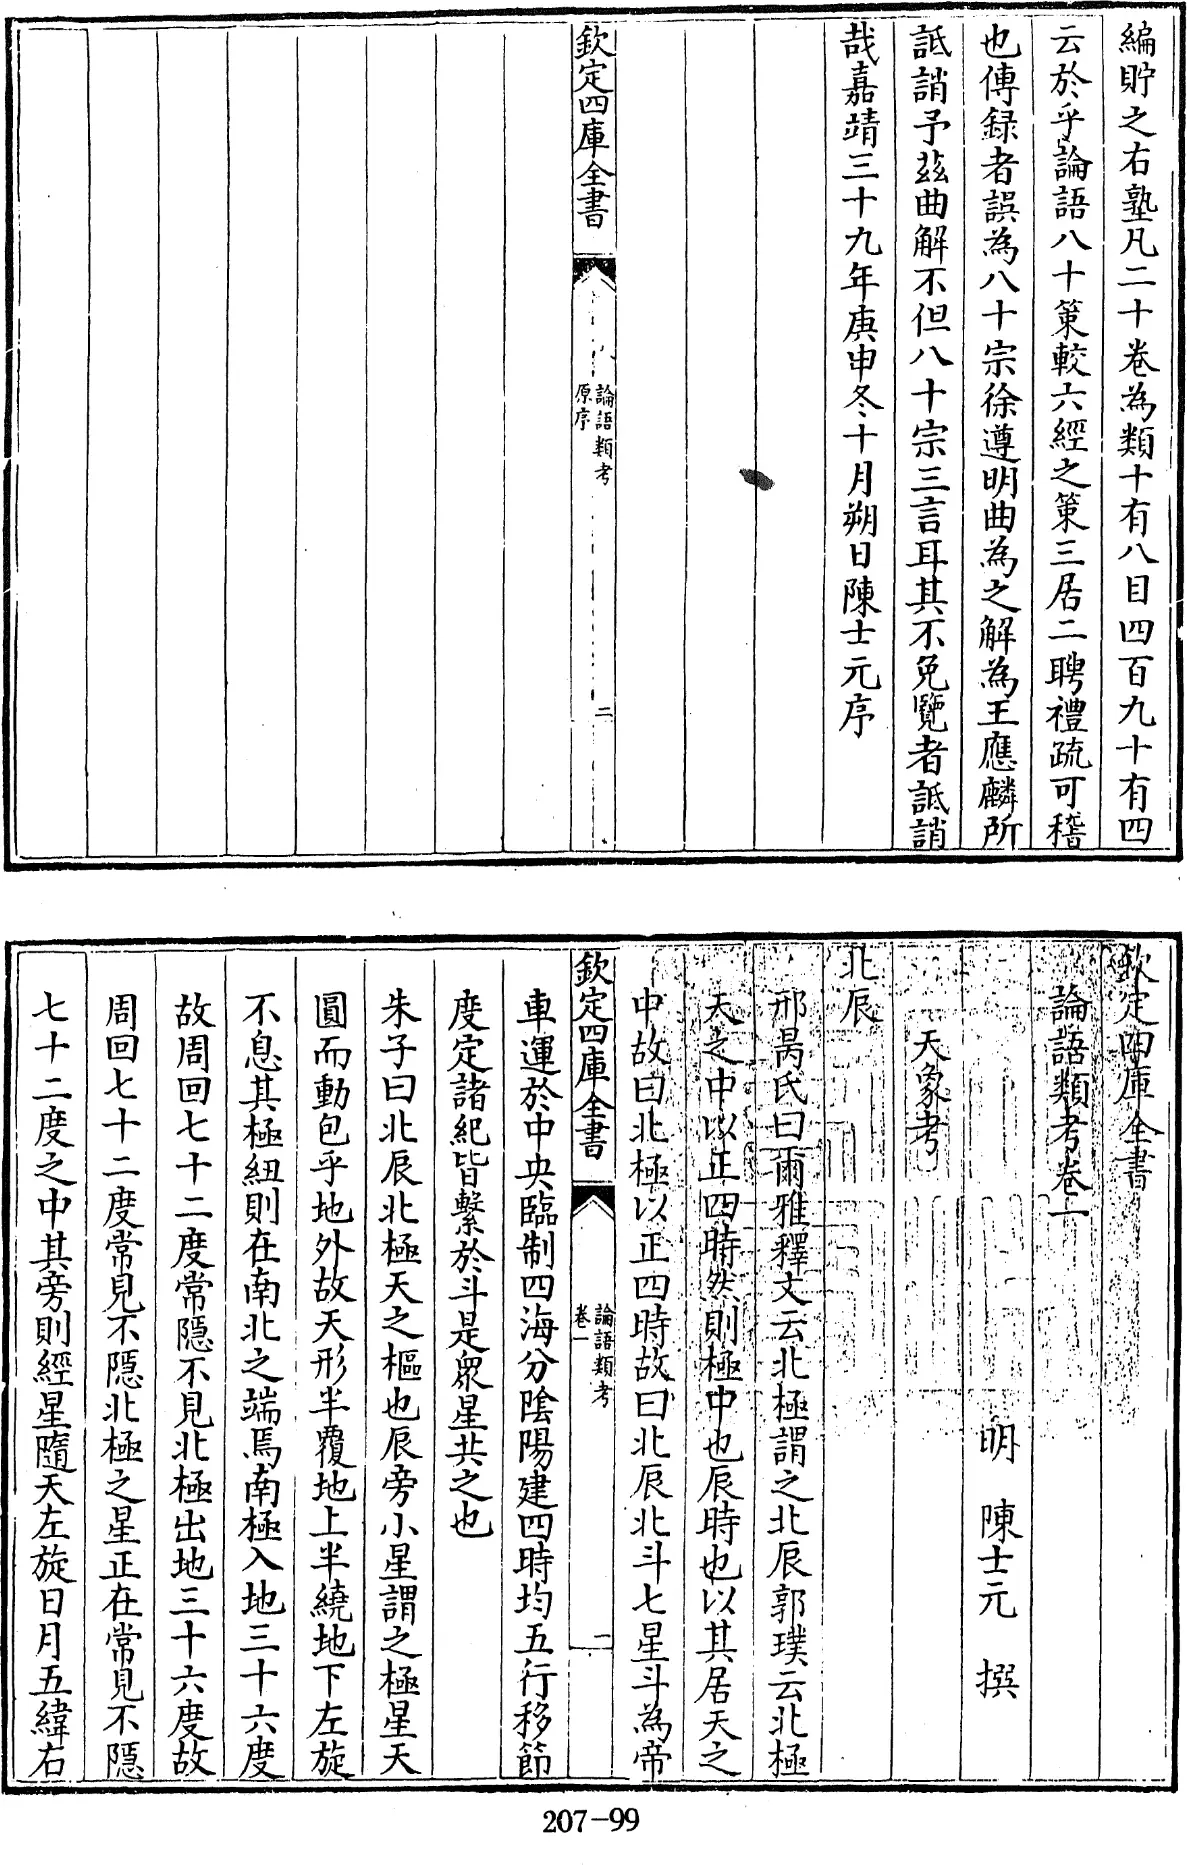 編貯之右塾凡二十卷為類十有八目四百九十有四
云於乎論語八十策較六經之策三居二聘禮疏可稽
也傳録者誤為八十宗徐遵明曲為之解為王應麟所
詆誚予茲曲解不但八十宗三言耳其不免覽者詆誚
哉嘉靖三十九年庚申冬十月朔日陳士元序
欽定四庫全書
論語類考
原序
二
欽定四庫全書
論語類考卷一
明 陳士元 撰
天象考
北辰
邢昺氏曰爾雅釋文云北極謂之北辰郭璞云北極
天之中以正四時然則極中也辰時也以其居天之
中故曰北極以正四時故曰北辰北斗七星斗為帝
欽定四庫全書
論語類考
卷一
一
車運於中央臨制四海分陰陽建四時均五行移節
度定諸紀皆繫於斗是衆星共之也
朱子曰北辰北極天之樞也辰旁小星謂之極星天
圓而動包乎地外故天形半覆地上半繞地下左旋
不息其極紐則在南北之端焉南極入地三十六度
故周回七十二度常隱不見北極出地三十六度故
周回七十二度常見不隱北極之星正在常見不隱
七十二度之中其旁則經星隨天左旋日月五緯右
207-99